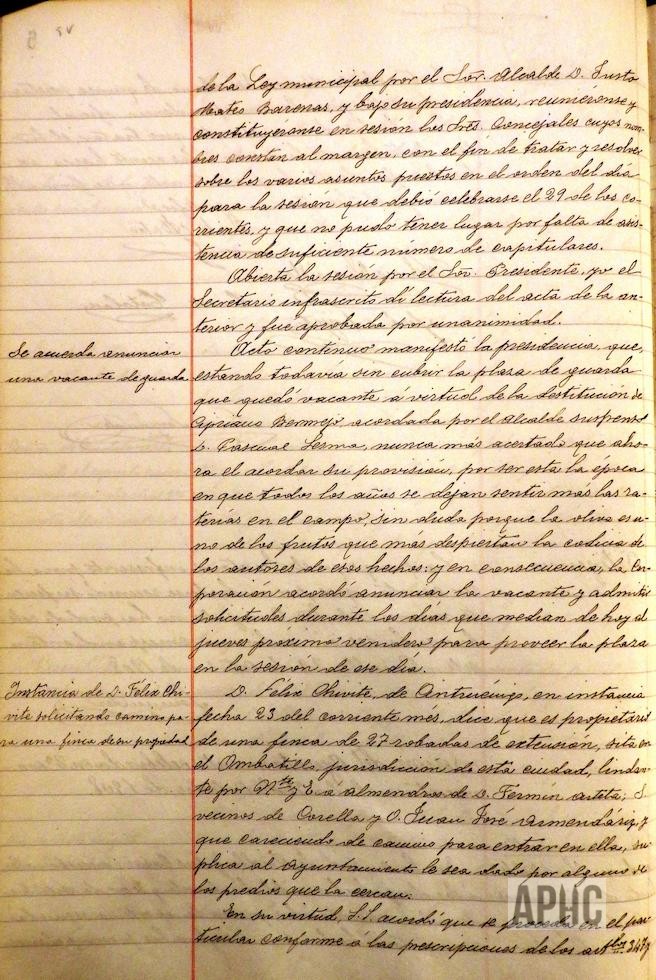 de la Ley municipal por el Sor. Alcalde D. Justo
Mateo Barenas, y bajo su presidencia, reuniéronse y
constituyéronse en sesión los Sres. Concejales cuyos nom-
bres constan al margen, con el fin de tratar y resolver
sobre los varios asuntos puestos en el orden del dia
para la sesión que debió celebrarse el 29 de los co-
rrientes, y que no pudo tener lugar por falta de asis-
tencia de suficiente número de capitulares.
Abierta la sesión por el Sor. Presidente, yo el
Secretario infrascrito dí lectura del acta de la an-
terior y fué aprobada por unanimidad.
Se acuerda anunciar
una vacante de guarda
Acto continuo manifestó la presidencia, que,
estando todavia sin cubrir la plaza de guarda
que quedó vacante á virtud de la destitución de
Cipriano Bermejo acordada por el Alcalde suspenso
D. Pascual Lesma, nunca más acertado que aho-
ra el acordar su provisión, por ser esta la época
en que todos los años se dejan sentir más las ra-
terías en el campo, sin duda porque la oliva es u-
no de los frutos que más despiertan la codicia de
los autores de esos hechos: y en consecuencia, la Cor-
poración acordó anunciar la vacante y admitir
solicitudes durante los días que median de hoy al
jueves próximo venidero para proveer la plaza
en la sesion de ese dia.
Instáncia de D. Felix Chi-
vite solicitando camino pa-
ra una finca de su propiedad
D. Félix Chivite, de Cintruénigo, en instancia
fecha 23 del corriente més, dice que es propietario
de una finca de 27 robadas de extensión, sita en
el Ombatillo, jurisdicción de esta ciudad, lindan-
te por Nte. y E. á almendros de D. Fermín Arteta; S.
vecinos de Corella y O. Juan José Armendariz, y
que careciendo de camino para entrar en ella, su-
plica al Ayuntamiento le sea dado por alguno de
los predios que la cercan.
En su virtud, S.S. acordó que se proceda en el par-
ticular conforme á las prescripciones de los artlos. 347 y
APHC